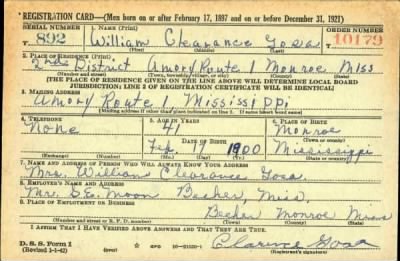 REGISTRATION CARD—(Men born on or after February 17, 1897 and on or before December 31, 1921)
SERIAL NUMBER 1. NAME (Print) ORDER NUMBER
T 892 William Clearance Gosa 10179
2. PLACE OF RESIDENCE (Print)
2nd District Amory Route 1 Monroe Miss
(Number and street) (Town, township, village, or city) (County) (State)
[THE PLACE OF RESIDENCE GIVEN ON THE LINE ABOVE WILL DETERMINE LOCAL BOARD
JURISDICTION; LINE 2 OF REGISTRATION CERTIFICATE WILL BE IDENTICAL]
3. MAILING ADDRESS
Amory Route Mississippi
[Mailing address if other than place indicated on line 2. If same insert word same]
4. TELEPHONE 5. AGE IN YEARS 6. PLACE OF BIRTH
None 41 Monroe
DATE OF BIRTH (Town or county)
Feb 17 1900 Mississippi
(Exchange) (Number) (Mo.) (Day) (Yr.) (State or country)
7. NAME AND ADDRESS OF PERSON WHO WILL ALWAYS KNOW YOUR ADDRESS
Mrs. William Clearance Gosa
8. EMPLOYER'S NAME AND ADDRESS
Mr. S.E. Moon Becker, Miss.
9. PLACE OF EMPLOYMENT OR BUSINESS
Becker Monroe Miss
(Number and street or R. F. D. number) (Town) (County) (State)
I AFFIRM THAT I HAVE VERIFIED ABOVE ANSWERS AND THAT THEY ARE TRUE.
D. S. S. Form 1
(Revised 1-1-42) (over) GPO 16—21630-1 Clarence Gosa
(Registrant's signature)